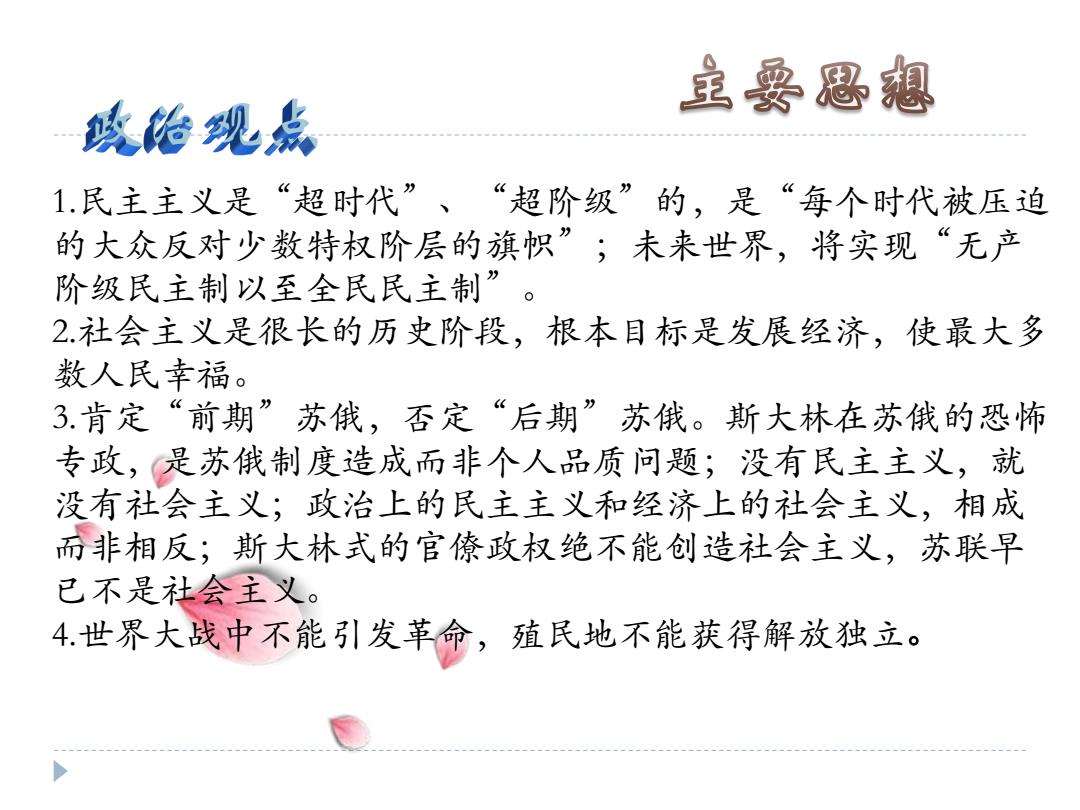 主要思想
政治观点
1.民主主义是“超时代”、“超阶级”的，是“每个时代被压迫
的大众反对少数特权阶层的旗帜”；未来世界，将实现“无产
阶级民主制以至全民民主制”。
2.社会主义是很长的历史阶段，根本目标是发展经济，使最大多
数人民幸福。
3.肯定“前期”苏俄，否定“后期”苏俄。斯大林在苏俄的恐怖
专政，是苏俄制度造成而非个人品质问题；没有民主主义，就
没有社会主义；政治上的民主主义和经济上的社会主义，相成
而非相反；斯大林式的官僚政权绝不能创造社会主义，苏联早
已不是社会主义。
4.世界大战中不能引发革命，殖民地不能获得解放独立。